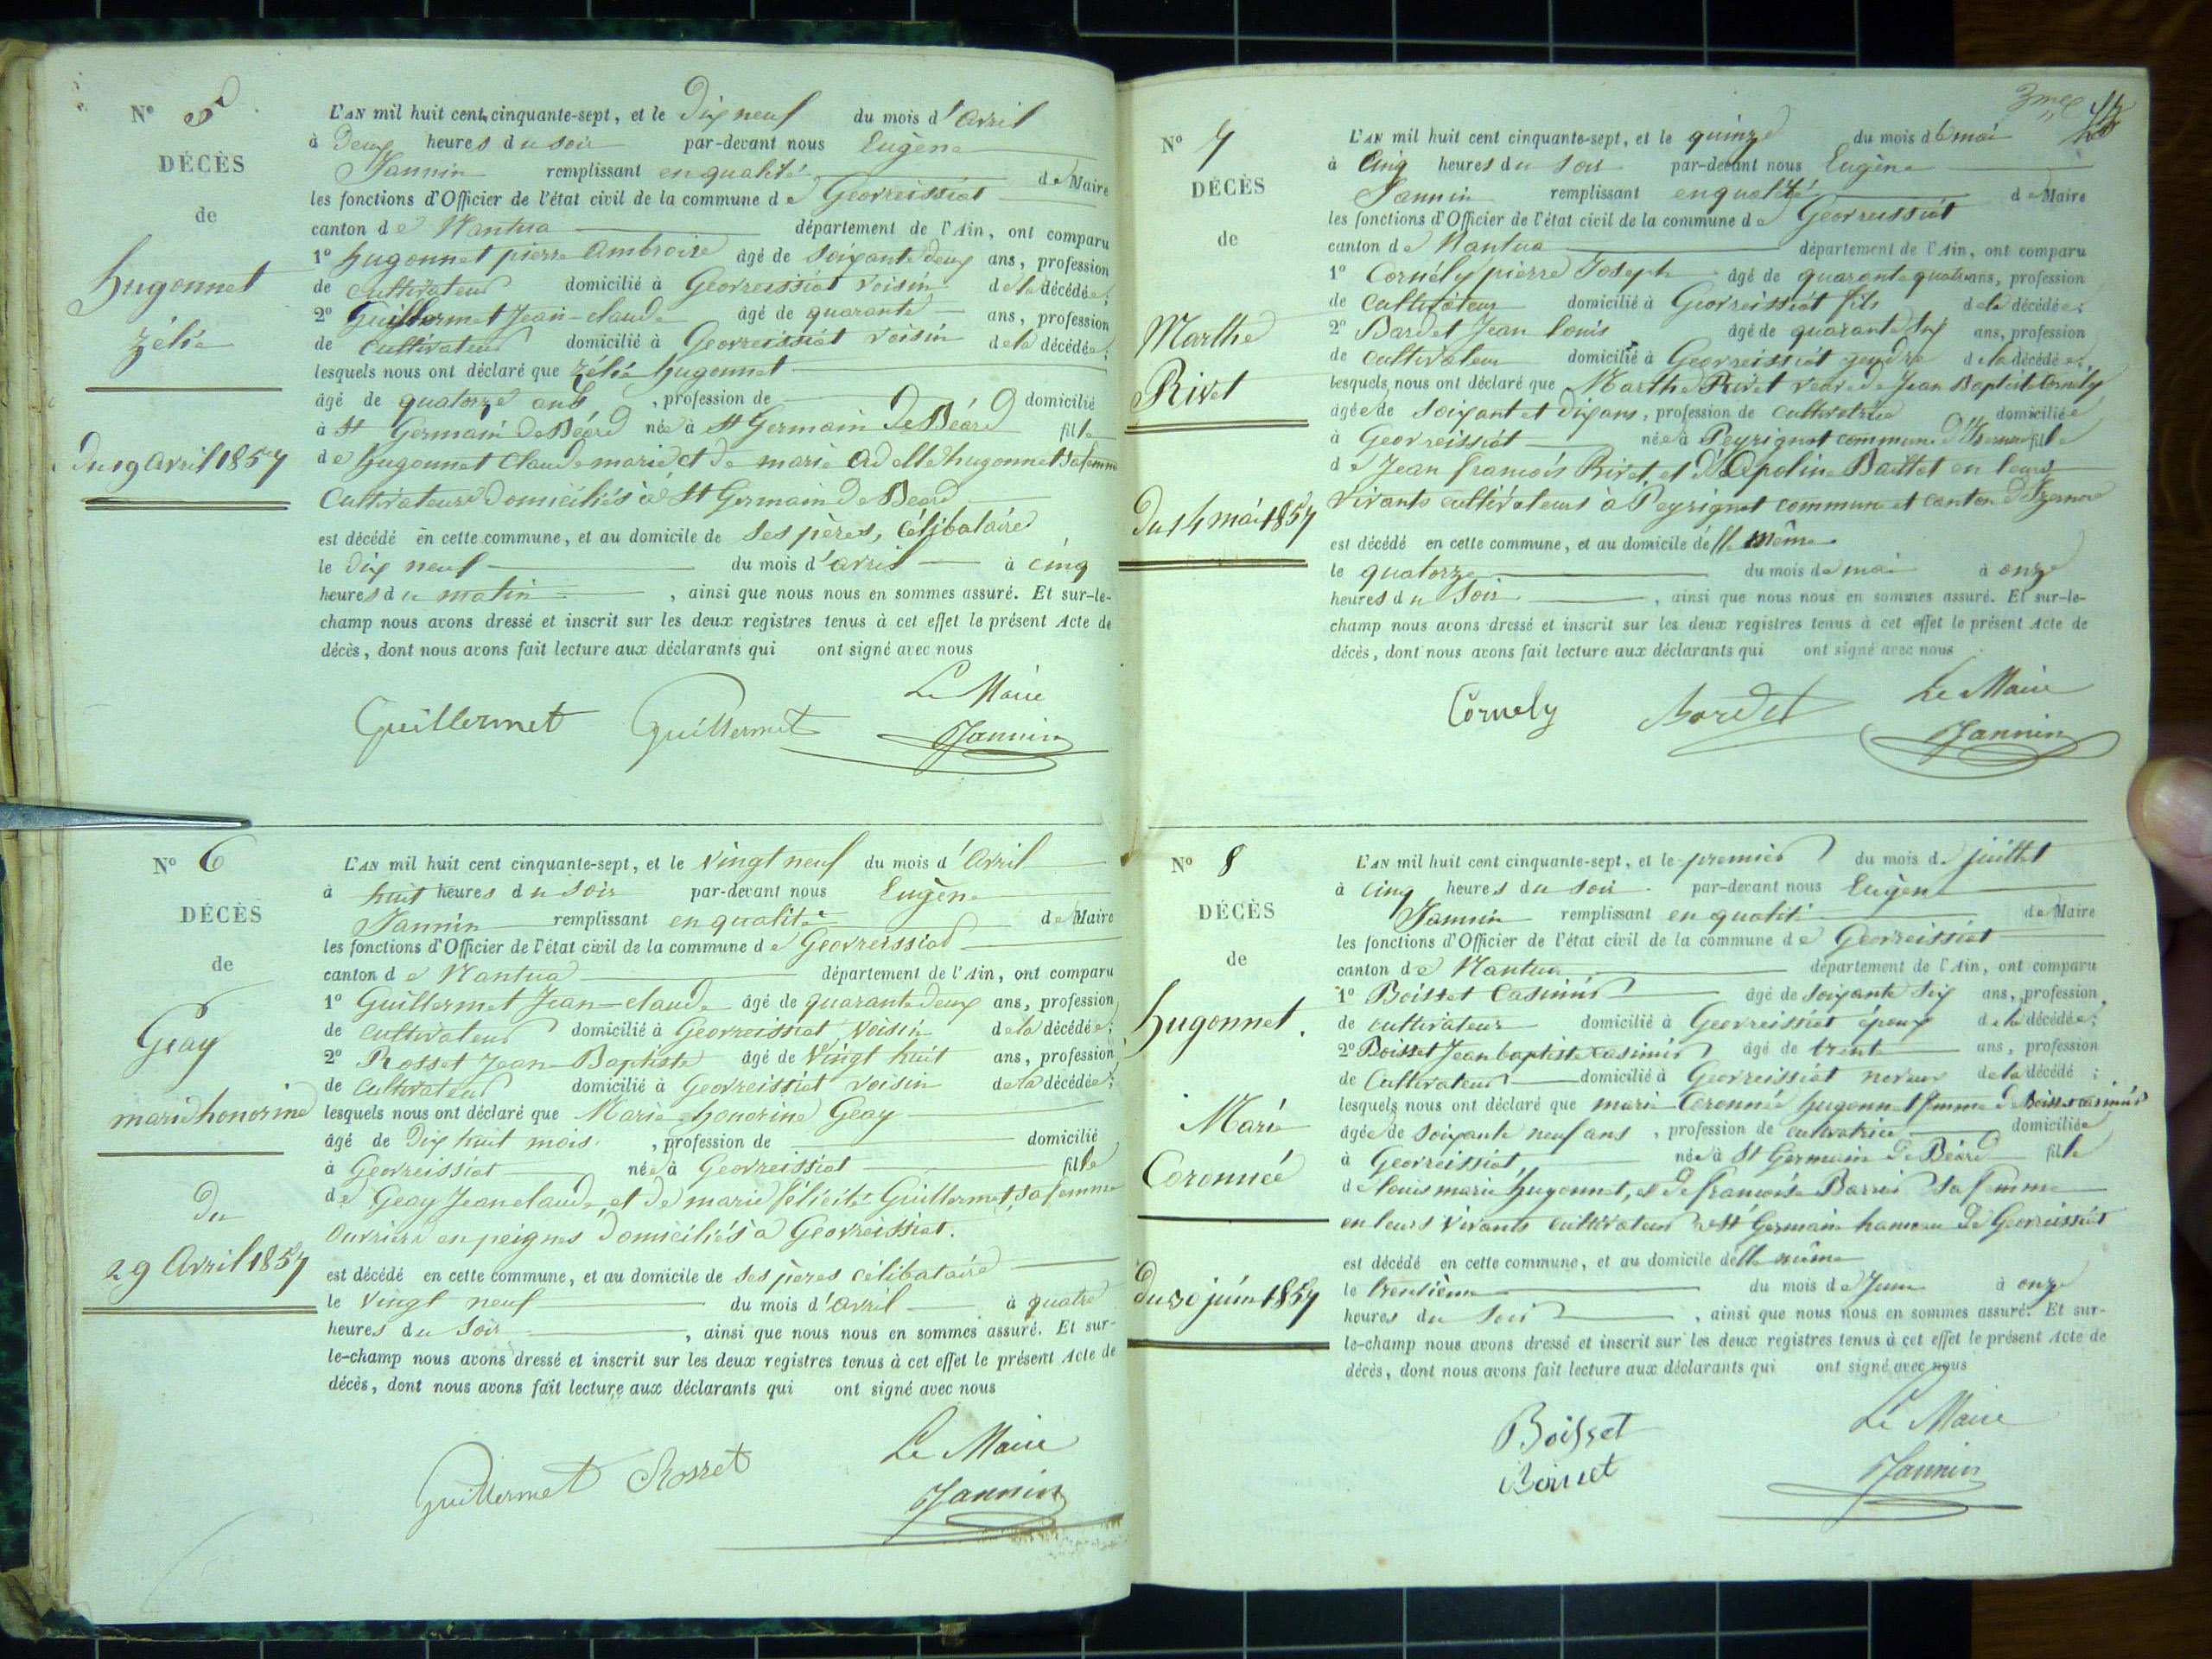 N° 5
DÉCÈS
de
hugonnet
zélie
du 19 avril 1857
L'AN mil huit cent cinquante-sept, et le Dix neuf du mois d'avril
à Deux heures du soir par-devant nous Eugène
Jannin remplissant en qualité de Maire
les fonctions d'Officier de l'état civil de la commune de Géovreissiat
canton de Nantua département de l'Ain, ont comparu
1° hugonnet pierre ambroise âgé de soixante deux ans, profession
de cultivateur domicilié à Géovreissiat voisin de la décédée;
2° Guillermet Jean-claude âgé de quarante ans, profession
de cultivateur domicilié à Géovreissiat voisin de la décédée;
lesquels nous ont déclaré que zélie hugonnet
âgé de quatorze ans, profession de domicilié
à St Germain De Béard née à St Germain De Béard fille
de hugonnet Claude marie et de marie adelle hugonnet sa femme
Cultivateurs Domiciliés à St Germain De Beard
est décédé en cette commune, et au domicile de ses pères, Célibataire
le Dix neuf du mois d'avril à cinq
heures du matin, ainsi que nous nous en sommes assuré. Et sur-le-
champ nous avons dressé et inscrit sur les deux registres tenus à cet effet le présent Acte de
décès, dont nous avons fait lecture aux déclarants qui ont signé avec nous
Le Maire
Guillermet Guillermet Jannin
N° 6
DÉCÈS
de
Geay
marie honorine
du
29 Avril 1857
L'AN mil huit cent cinquante-sept, et le Vingt neuf du mois d'Avril
à huit heures du soir par-devant nous Eugène
Jannin remplissant en qualité de Maire
les fonctions d'Officier de l'état civil de la commune de Géovreissiat
canton de Nantua département de l'Ain, ont comparu
1° Guillermet Jean-claude âgé de quarante deux ans, profession
de cultivateur domicilié à Géovreissiat voisin de la décédée;
2° Rosset Jean-Baptiste âgé de Vingt huit ans, profession
de Cultivateur domicilié à Géovreissiat voisin de la décédée;
lesquels nous ont déclaré que Marie honorine Geay
âgé de Dix huit mois, profession de domicilié
à Géovreissiat née à Géovreissiat fille
de Geay Jean claude et de marie félicité Guillermet, sa femme
Ouvriers en peignes Domiciliés à Géovreissiat.
est décédé en cette commune, et au domicile de ses pères célibataire
le Vingt neuf du mois d'avril à quatre
heures du Soir, ainsi que nous nous en sommes assuré. Et sur-
le-champ nous avons dressé et inscrit sur les deux registres tenus à cet effet le présent Acte de
décès, dont nous avons fait lecture aux déclarants qui ont signé avec nous
Le Maire
Guillermet Rosset Jannin
N° 7
DÉCÈS
de
Marthe
Rivet
Du 14 mai 1857
L'AN mil huit cent cinquante-sept, et le quinze du mois de mai
à Cinq heures du soir par-devant nous Eugène
Jannin remplissant en qualité de Maire
les fonctions d'Officier de l'état civil de la commune de Géovreissiat
canton de Nantua département de l'Ain, ont comparu
1° Cornély pierre Joseph âgé de quarante quatre ans, profession
de Cultivateur domicilié à Géovreissiat fils de la décédée;
2° Bardet Jean louis âgé de quarante six ans, profession
de cultivateur domicilié à Géovreissiat gendre de la décédée;
lesquels nous ont déclaré que Marthe Rivet veuve de Jean Baptiste Cornély
âgée de soixant et dix ans, profession de cultivatrice domiciliée
à Géovreissiat née à Peyrignat commune d'Izernore fille
de Jean françois Rivet, et d'Apoline Baillot en leurs
vivants cultivateurs à Peyrignat commune et canton d'Izernore
est décédé en cette commune, et au domicile d'elle même
le quatorze du mois de mai à onze
heures du Soir, ainsi que nous nous en sommes assuré. Et sur-le-
champ nous avons dressé et inscrit sur les deux registres tenus à cet effet le présent Acte de
décès, dont nous avons fait lecture aux déclarants qui ont signé avec nous
Le Maire
Cornely Bardet Jannin
N° 8
DÉCÈS
de
hugonnet.
Marie
Coronnée
Du 30 juin 1857
L'AN mil huit cent cinquante-sept, et le premier du mois de juillet
à cinq heures du soir par-devant nous Eugène
Jannin remplissant en qualité de Maire
les fonctions d'Officier de l'état civil de la commune de Géovreissiat
canton de Nantua département de l'Ain, ont comparu
1° Boisset Casimir âgé de soixante six ans, profession
de cultivateur domicilié à Géovreissiat époux de la décédée;
2° Boisset Jean baptiste casimir âgé de trente ans, profession
de Cultivateur domicilié à Géovreissiat neveux de la décédé;
lesquels nous ont déclaré que marie Coronnée hugonnet femme de Boisset casimir
âgée de soixante neuf ans, profession de cultivatrice domiciliée
à Géovreissiat née à St Germain De Béard fille
de louis marie hugonnet, et de françoise Barrier sa femme
en leurs vivants cultivateurs à St Germain hameau de Géovreissiat
est décédé en cette commune, et au domicile d'elle même
le trentième du mois de Juin à onze
heures du Soir, ainsi que nous nous en sommes assuré. Et sur-
le-champ nous avons dressé et inscrit sur les deux registres tenus à cet effet le présent Acte de
décès, dont nous avons fait lecture aux déclarants qui ont signé avec nous
Le Maire
Boisset
Boisset Jannin